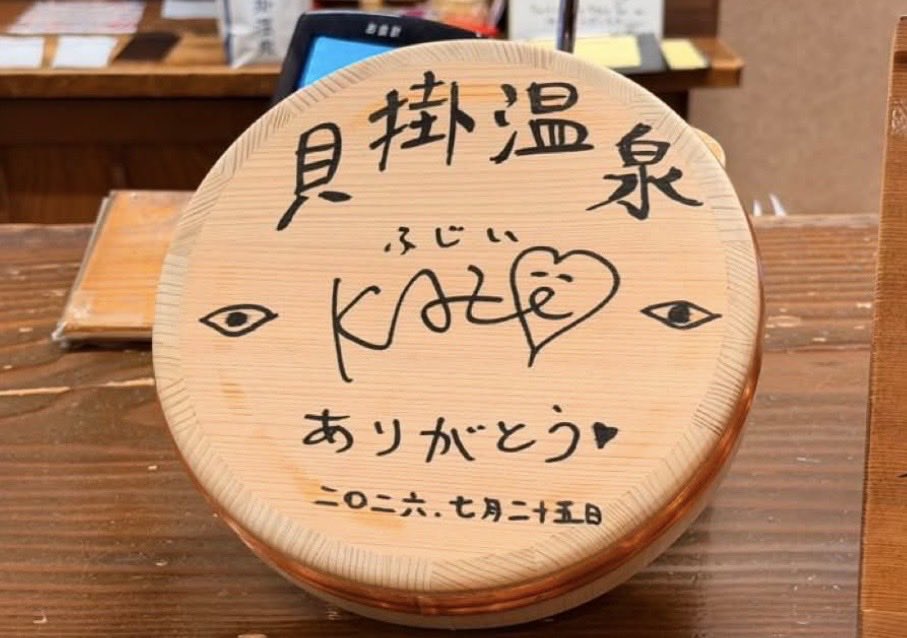 お会計
貝掛温泉
ふじい
Kaze
ありがとう♥
二〇二六.七月二十五日